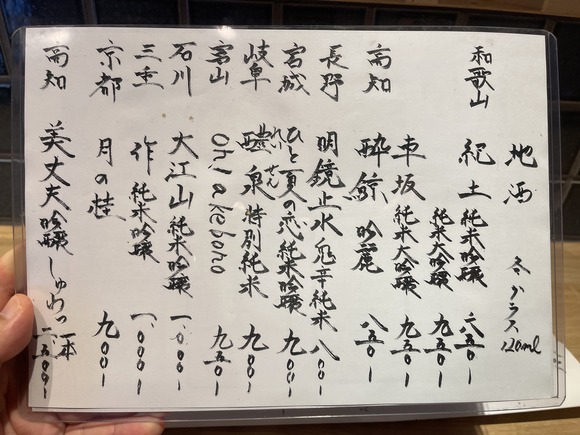 地酒 冬グラス120ml
和歌山 紀土 純米吟醸 八五〇ー
純米大吟醸 九五〇ー
車坂 純米大吟醸 九五〇ー
高知 酔鯨 吟麗 八五〇ー
長野 明鏡止水 鬼辛純米 八〇〇ー
宮城 ひと夏の恋 純米吟醸 九〇〇ー
岐阜 醴泉 れいせん 特別純米 九〇〇ー
富山 Oh! akebono 九五〇ー
石川 大江山 純米吟醸 一、〇〇〇ー
三重 作 純米吟醸 一、〇〇〇ー
京都 月の桂 九〇〇ー
高知 美丈夫 吟醸 しゅわっ 一本